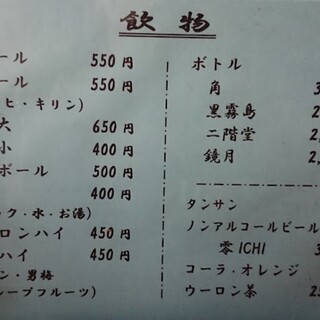 飲物
ール 550円
ール 550円
ヒ・キリン)
大 650円
小 400円
ボール 500円
400円
ック・水・お湯)
ロンハイ 450円
ハイ 450円
ン・男梅
ープフルーツ)
ボトル
角 3
黒霧島 2
二階堂 2,
鏡月 2,
タンサン
ノンアルコールビール
零ICHI 3
コーラ・オレンジ
ウーロン茶 25